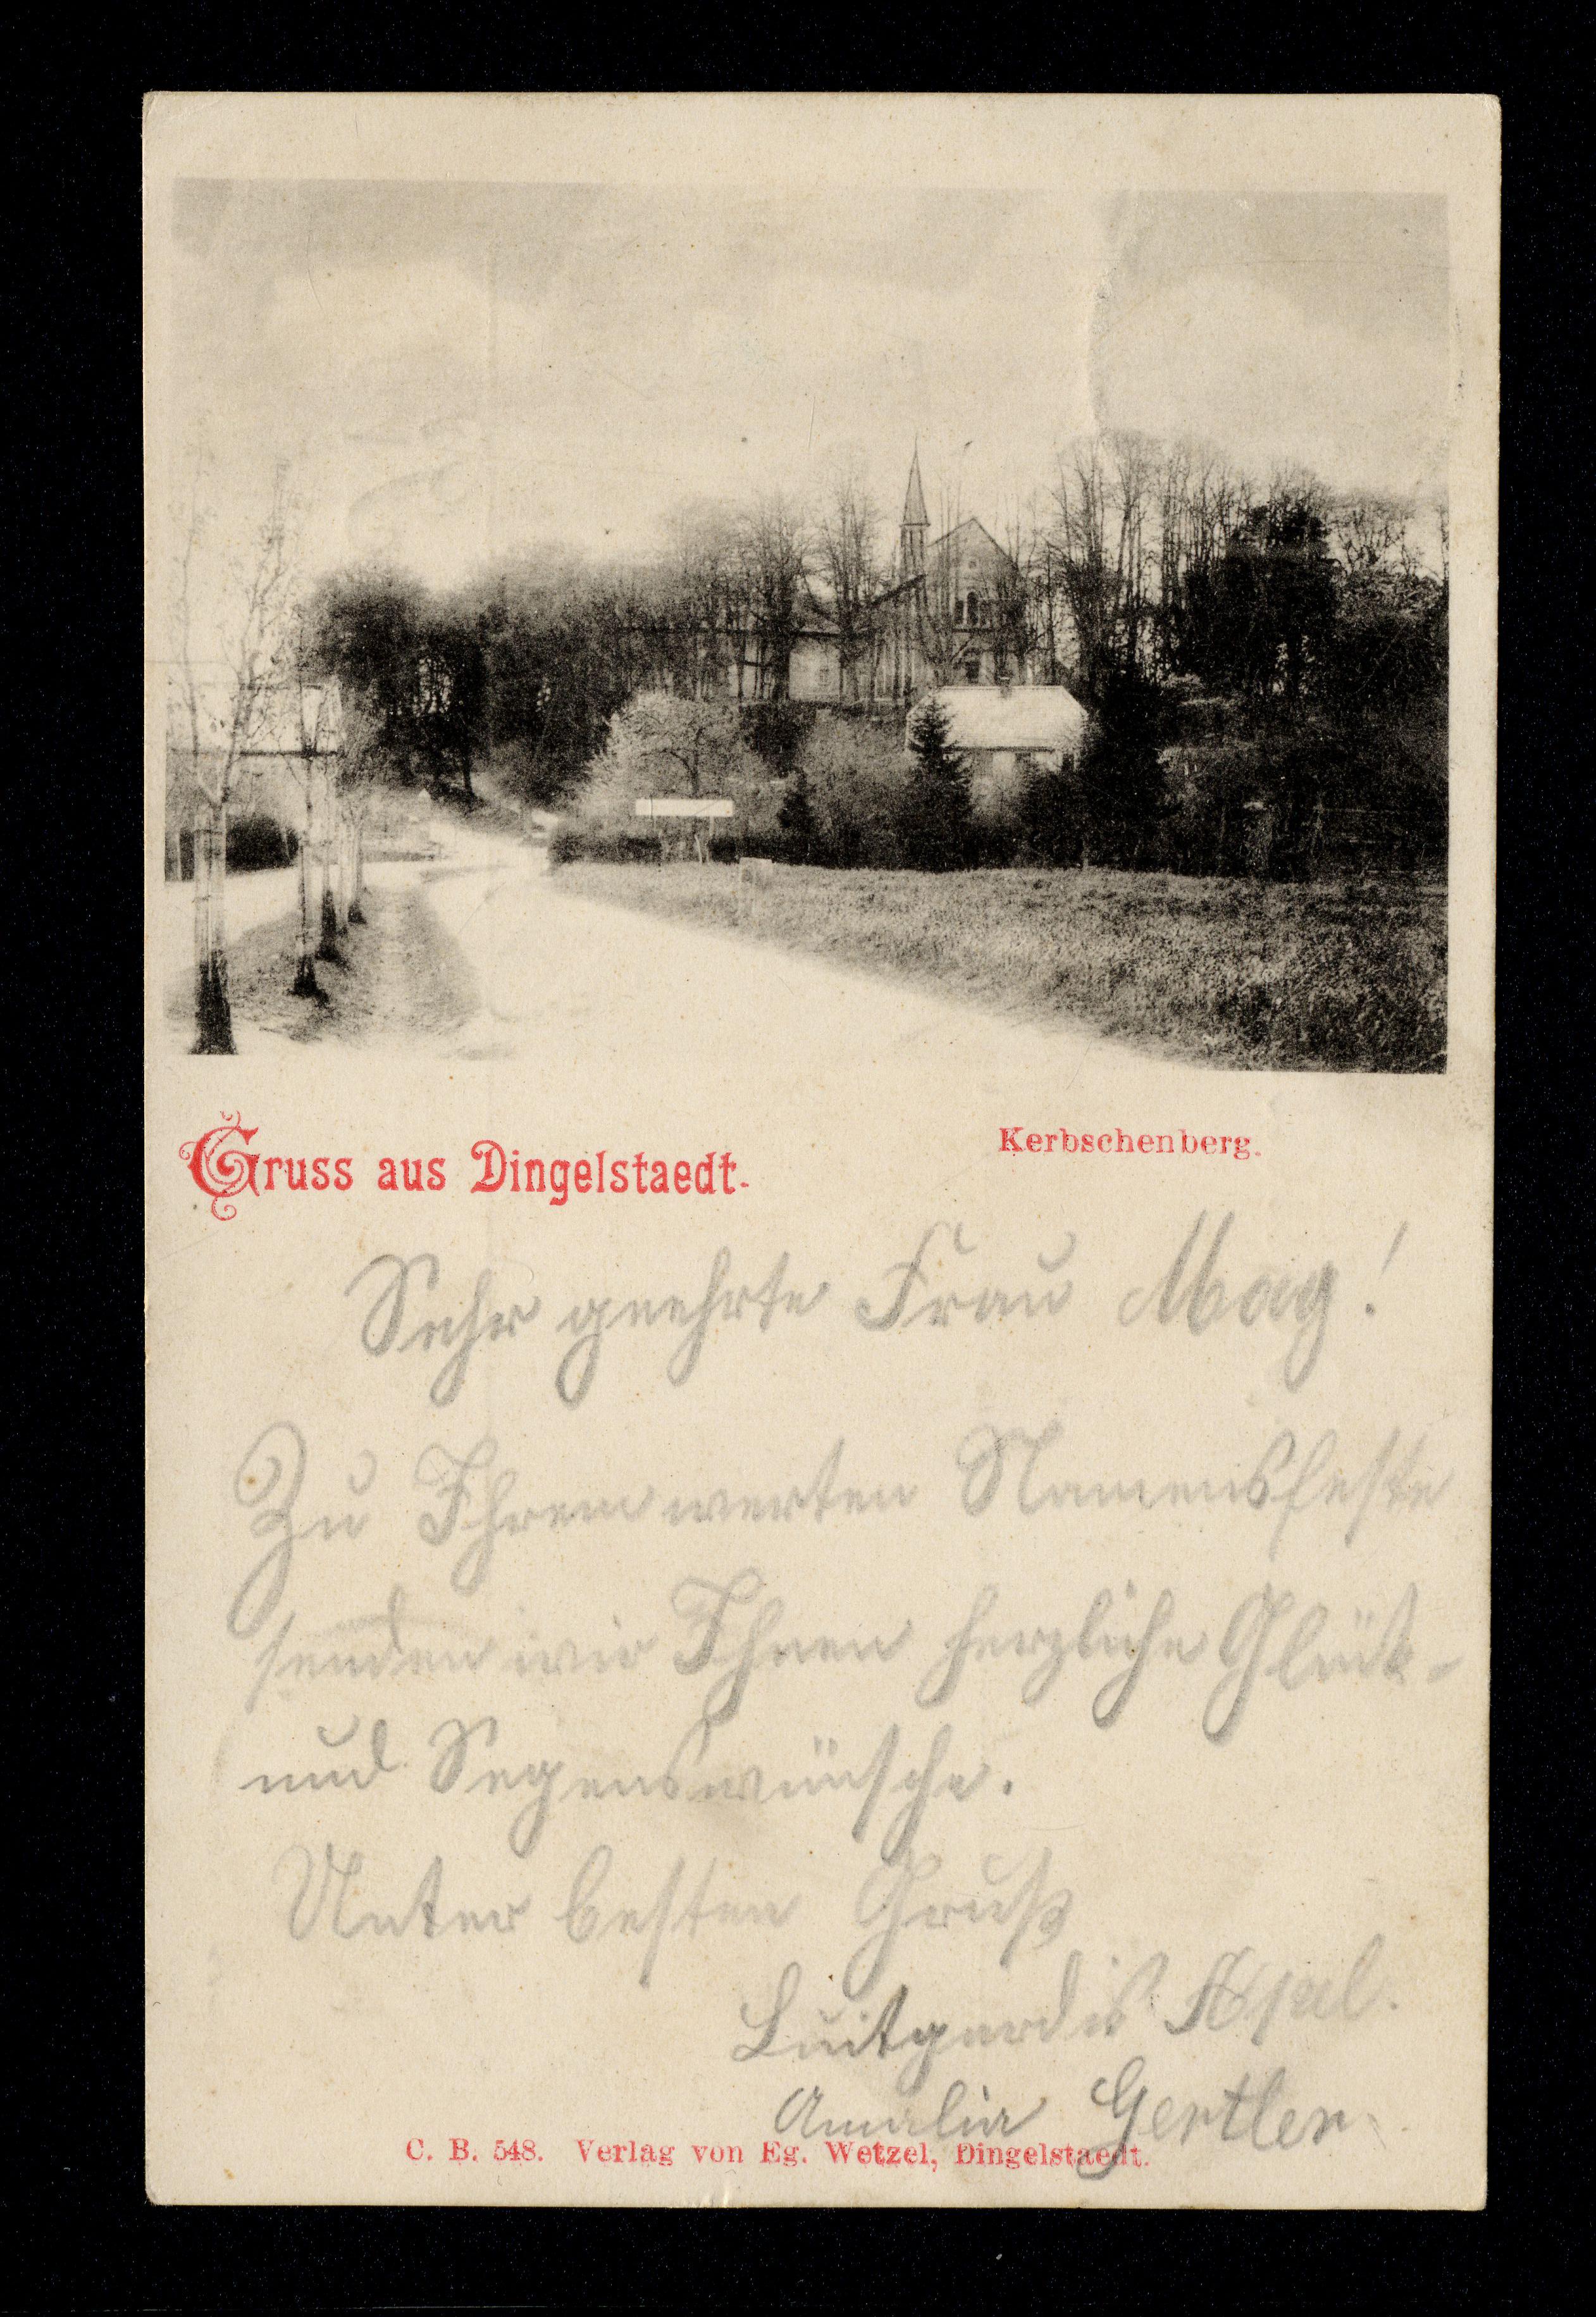 Gruss aus Dingelstaedt.
Kerbschenberg.
Sehr geehrte Frau Mag!
Zu Ihrem werten Namensfeste
senden wir Ihnen herzliche Glück-
und Segenswünsche.
Unter besten Gruß
Luitgardis
Amalia Gertler
C. B. 548. Verlag von Eg. Wetzel, Dingelstaedt.